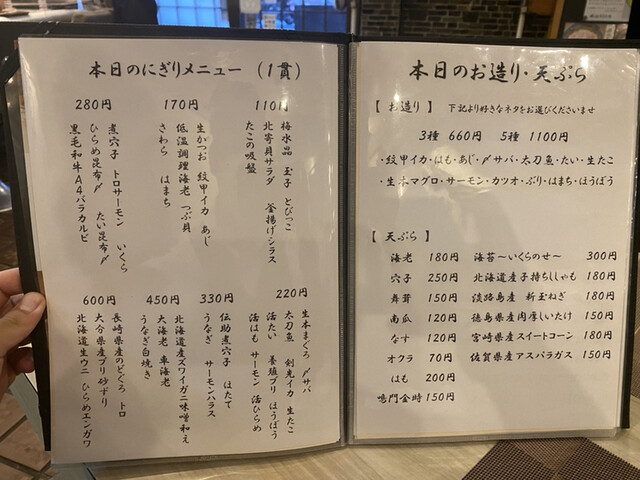 本日のにぎりメニュー (1貫)
110円
梅水晶 玉子 とびっこ
北寄貝サラダ 釜揚げシラス
たこの吸盤
170円
生かつお 紋甲イカ あじ
低温調理海老 つぶ貝
さわら はまち
280円
煮穴子 トロサーモン いくら
ひらめ昆布〆 たい昆布〆
黒毛和牛A4バラカルビ
220円
生本まぐろ 〆サバ
太刀魚 剣先イカ 生たこ
活たい 養殖ブリ ほうぼう
活はも サーモン 活ひらめ
330円
伝助煮穴子 ほたて
うなぎ サーモンハラス
450円
北海道産ズワイガニ味噌和え
大海老 車海老
うなぎ白焼き
600円
長崎県産のどぐろ トロ
大分県産ブリ砂ずり
北海道生ウニ ひらめエンガワ
本日のお造り・天ぷら
【 お造り 】 下記より好きなネタをお選びくださいませ
3種 660円 5種 1100円
・紋甲イカ・はも・あじ・〆サバ・太刀魚・たい・生たこ
・生本マグロ・サーモン・カツオ・ぶり・はまち・ほうぼう
【 天ぷら 】
海老 180円
穴子 250円
舞茸 150円
南瓜 120円
なす 120円
オクラ 70円
はも 200円
鳴門金時 150円
海苔〜いくらのせ〜 300円
北海道産子持ちししゃも 180円
淡路島産 新玉ねぎ 180円
徳島県産肉厚しいたけ 150円
宮崎県産スイートコーン 180円
佐賀県産アスパラガス 150円